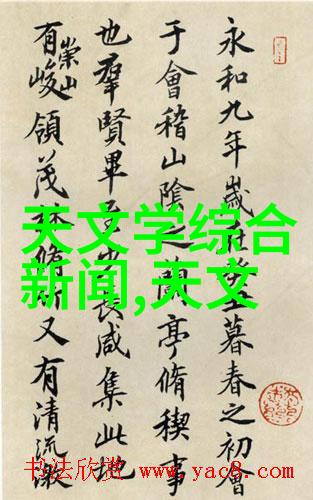 永和九年歲在癸丑暮春之初會
于會稽山陰之蘭亭脩稧事
也羣賢畢至少長咸集此地
有崇山峻領茂林脩竹又有清流激
天文学综合
新闻,天文
书法欣赏 www.yac8.com